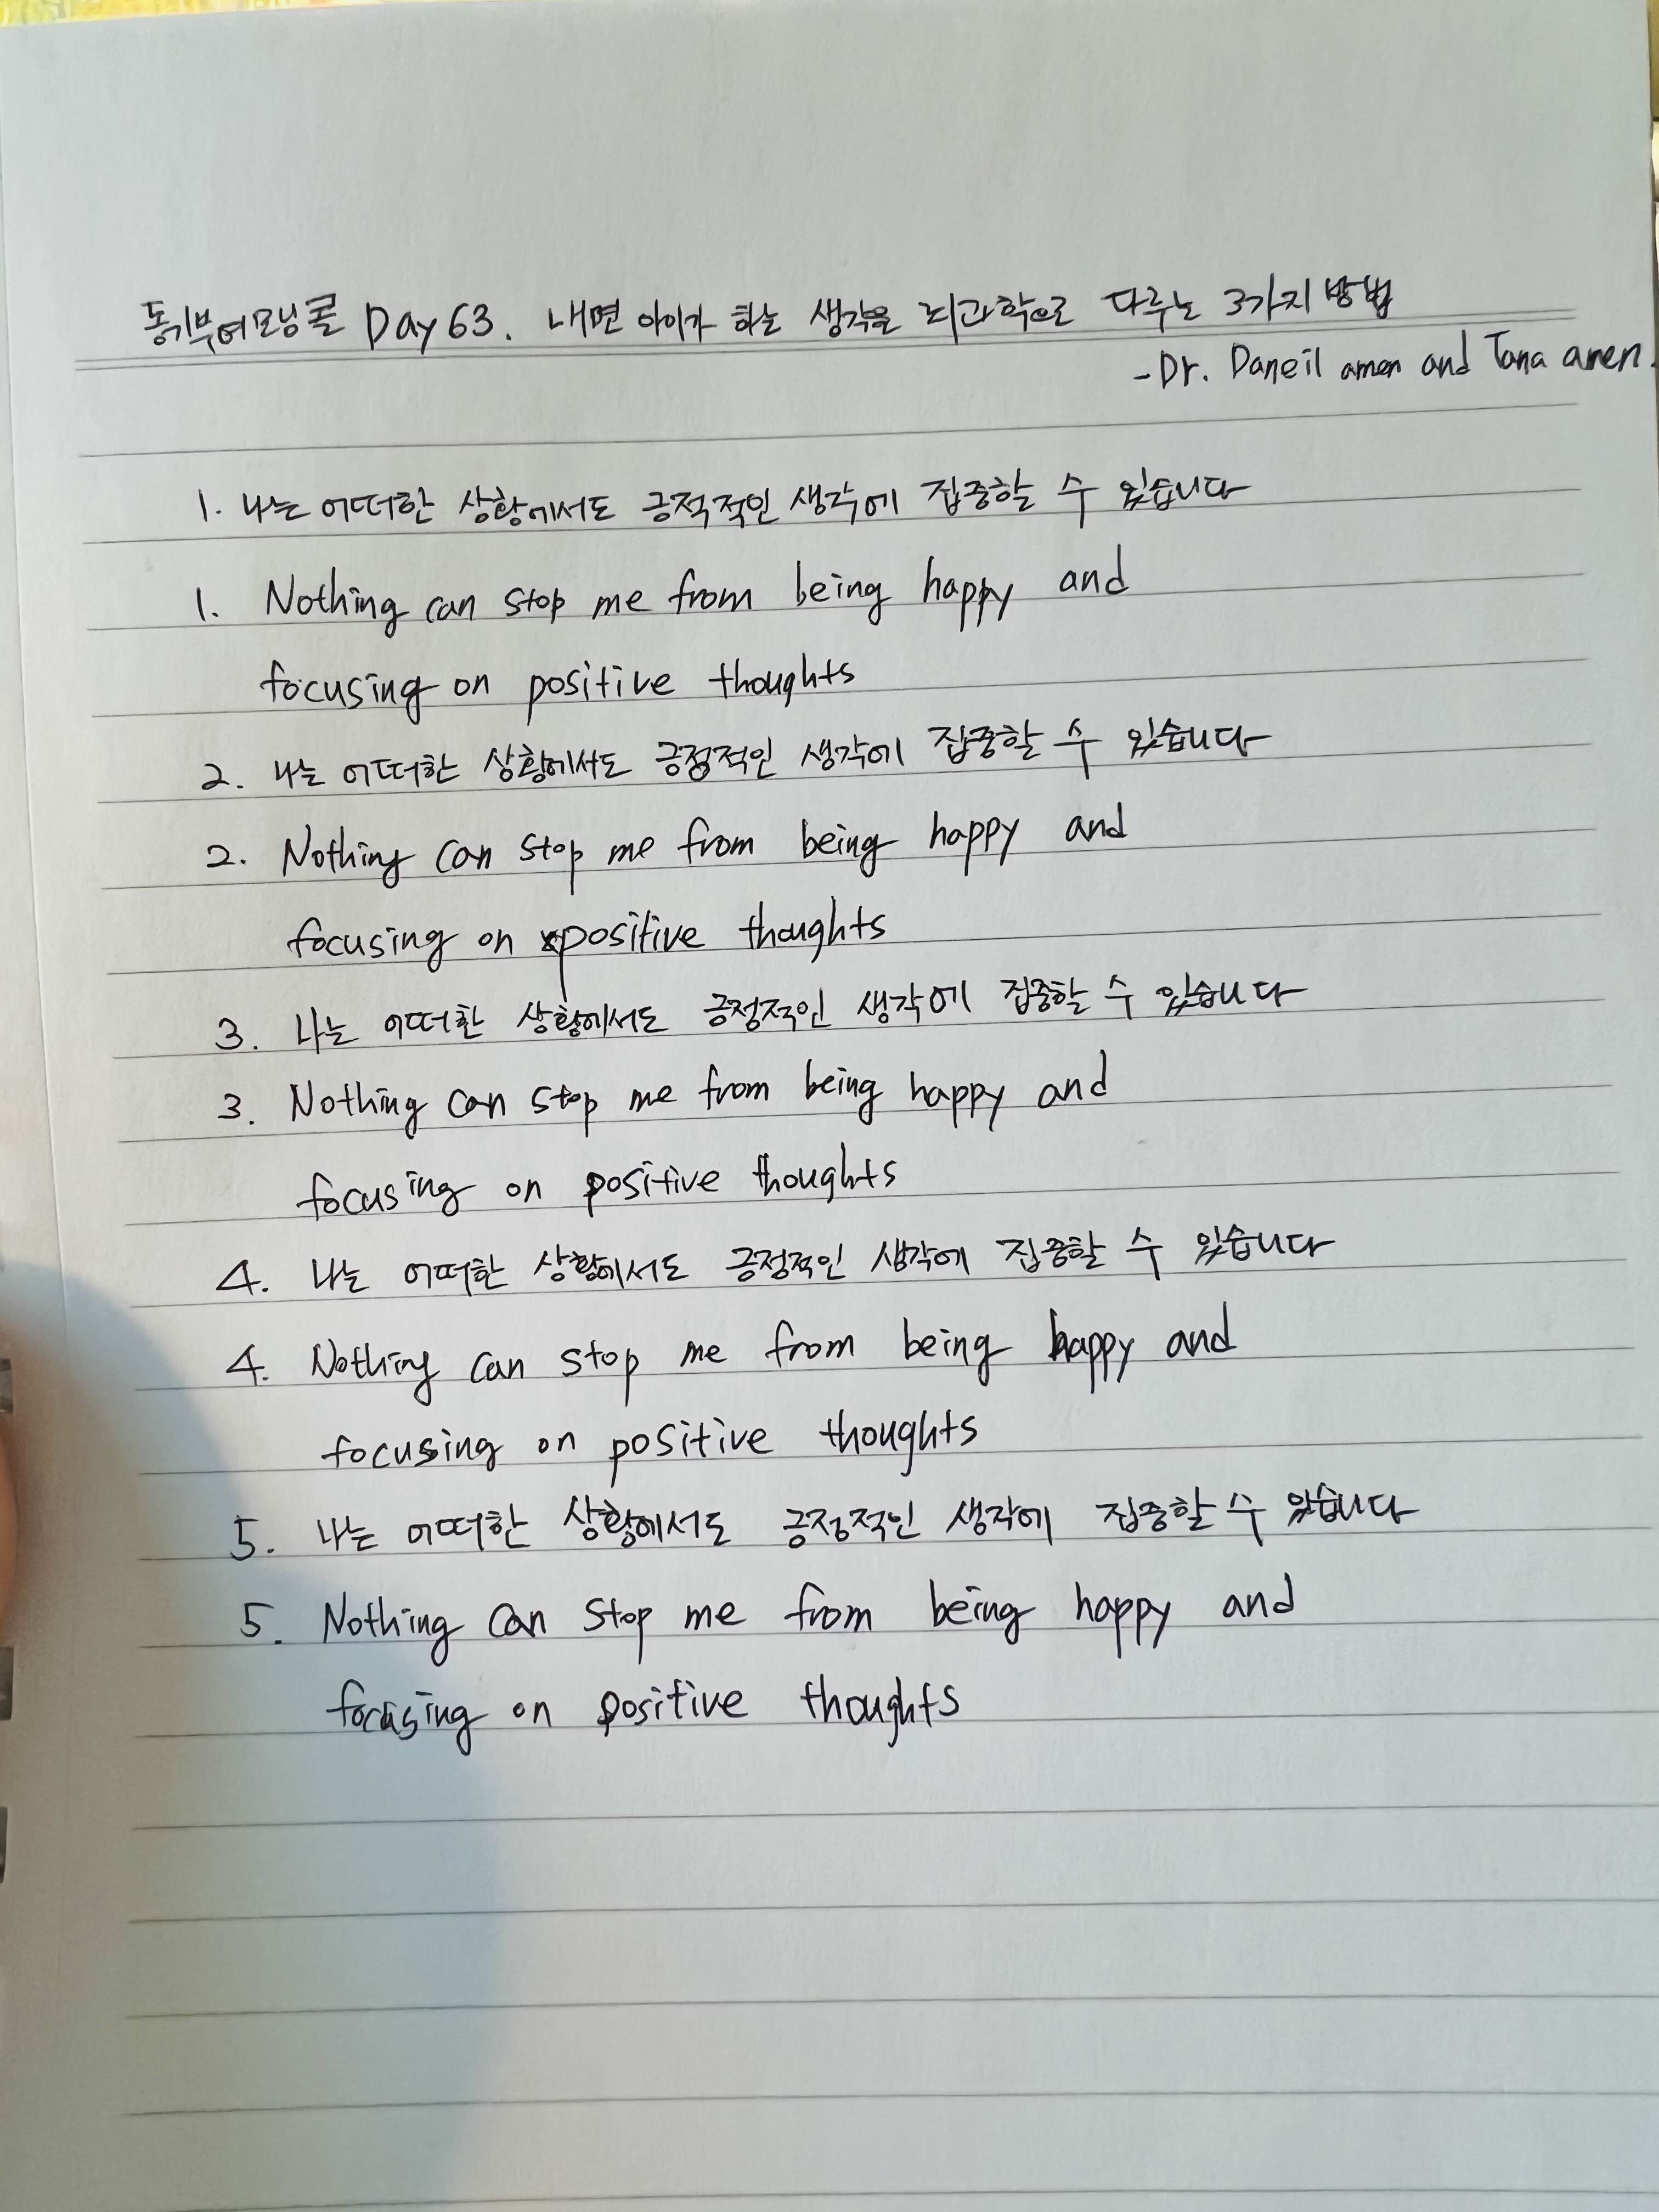 동기부여모닝콜 Day 63. 내면 아이가 하는 생각을 뇌과학으로 다루는 3가지 방법
-Dr. Daneil amen and Tana amen.
1. 나는 어떠한 상황에서도 긍적적인 생각에 집중할 수 있습니다
1. Nothing can stop me from being happy and
focusing on positive thoughts
2. 나는 어떠한 상황에서도 긍정적인 생각에 집중할 수 있습니다
2. Nothing can stop me from being happy and
focusing on positive thoughts
3. 나는 어떠한 상황에서도 긍정적인 생각에 집중할 수 있습니다
3. Nothing can stop me from being happy and
focusing on positive thoughts
4. 나는 어떠한 상황에서도 긍정적인 생각에 집중할 수 있습니다
4. Nothing can stop me from being happy and
focusing on positive thoughts
5. 나는 어떠한 상황에서도 긍정적인 생각에 집중할 수 있습니다
5. Nothing can stop me from being happy and
focusing on positive thoughts